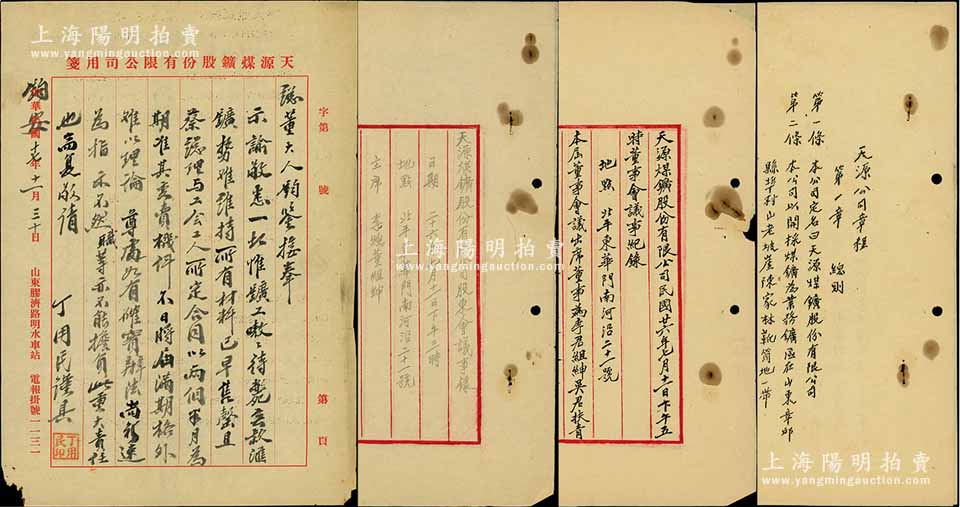 上海陽明拍賣
www.yangmingauction.com
天源公司章程
第一章 總則
第一條 本公司定名曰天源煤鑛股份有限公司
第二條 本公司以開採煤鑛為業務鑛區在山東章邱
縣埠村山老坡崖陳家林靴筒地一帶
天源煤鑛股份有限公司民國廿六年七月十一日下午五
時董事會議事紀錄
地點 北平東華門南河沿二十一號
本届董事會議出席董事為李君組紳吳君扶青
天源煤鑛股份有限公司股東會議事錄
日期 二十六年七月十一日下午三時
地點 北平東華門南河沿二十一號
主席 李總董組紳
天源煤鑛股份有限公司用箋
字第 號
第 頁
總董大人鈞鑒接奉
示諭敬悉一切惟鑛工嗷嗷待斃無款滙
鑛勢難維持所有材料已早售罄且
蔡總理与工会工人所定合同以两個半月為
期准其變賣機件不日將屆滿期格外
难以理論 尊處如有確實辦法尚祈速
為指示不然職等亦不能擔負此重大責任
也耑复敬請
鈞安
丁用民謹具
丁用民印
中華民國十七年十一月三十日
山東膠濟路明水車站 電報掛號一一三一
上海陽明拍賣
www.yangmingauction.com